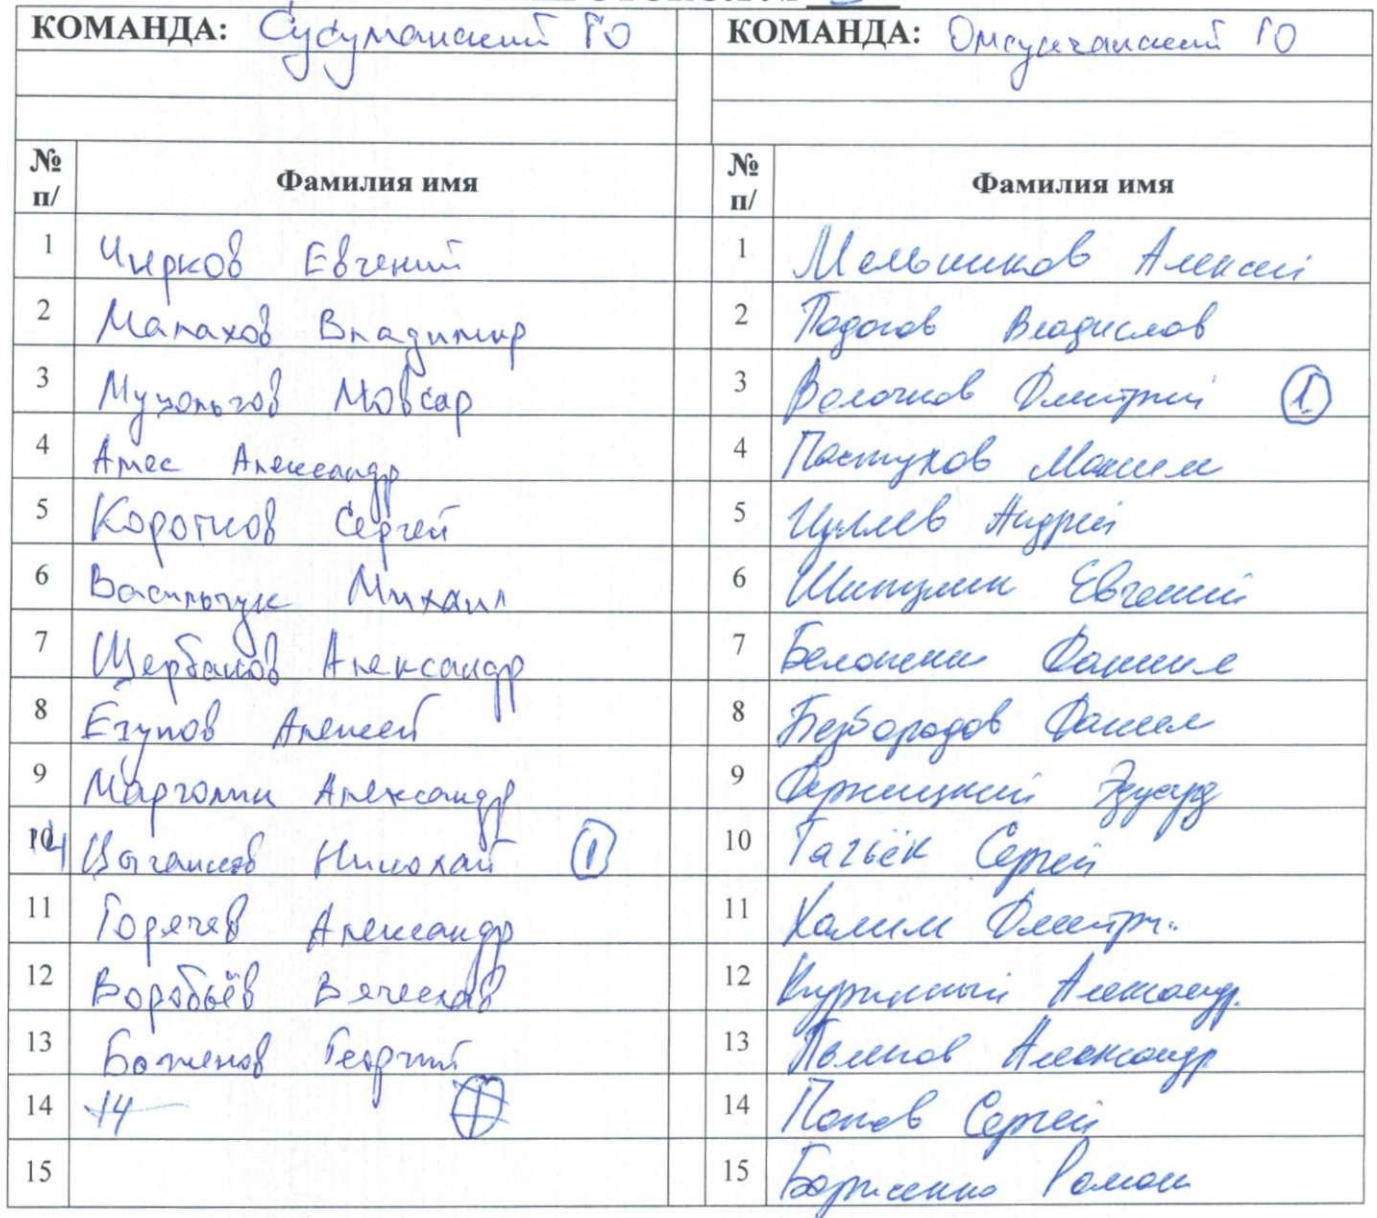 КОМАНДА: Сусуманский ГО
№ п/ Фамилия имя
1 Чирков Евгений
2 Малахов Владимир
3 Муцольгов Мовсар
4 Амес Александр
5 Коротков Сергей
6 Васильчук Михаил
7 Щербаков Александр
8 Егупов Алексей
9 Марголин Александр
14 Цыганков Николай 1
11 Горячев Александр
12 Воробьёв Вячеслав
13 Баженов Георгий
14 14
15
КОМАНДА: Омсукчанский ГО
№ п/ Фамилия имя
1 Мельников Алексей
2 Владислав
3 Волочков Дмитрий 1
4 Пастухов Максим
5 Андрей
6 Шипулин Евгений
7 Даниил
8 Безбородов Данил
9 Эдуард
10 Сергей
11 Халим Дмитри
12 Александр
13 Александр
14 Попов Сергей
15 Борисенко Роман